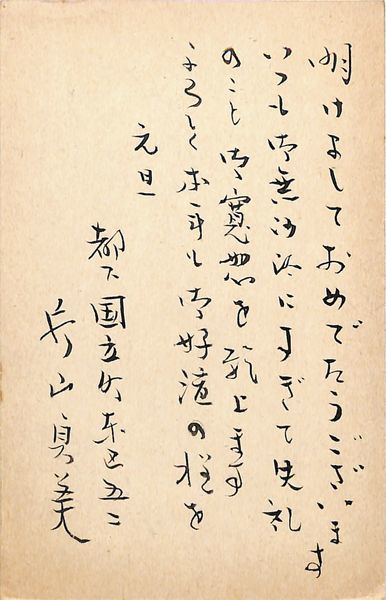 明けましておめでたうございます
いつも御無沙汰にすぎて失礼
のこと御寛恕を願上ます
よろしく本年も御好誼の程を
元旦
都下国立町東区五二
山真美